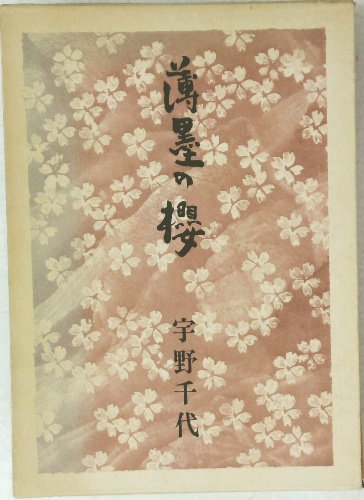 薄墨の櫻
宇野千代